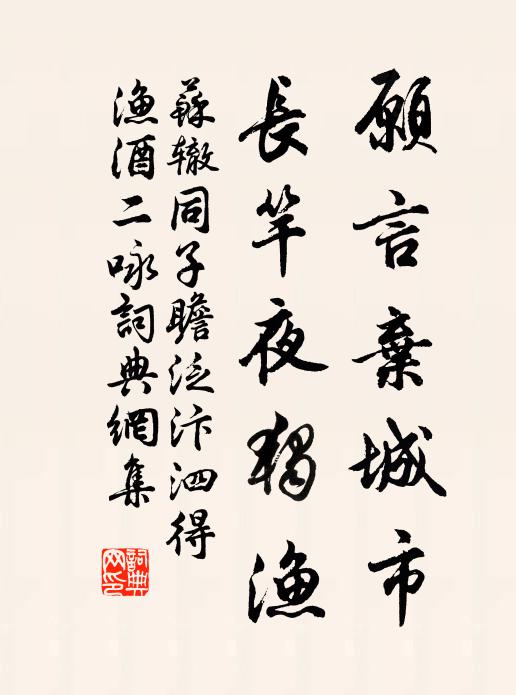 願言棄城市
長竿夜獨漁
蘇辙同子瞻泛汴泗得
漁酒二咏詞典網集
詞典网印